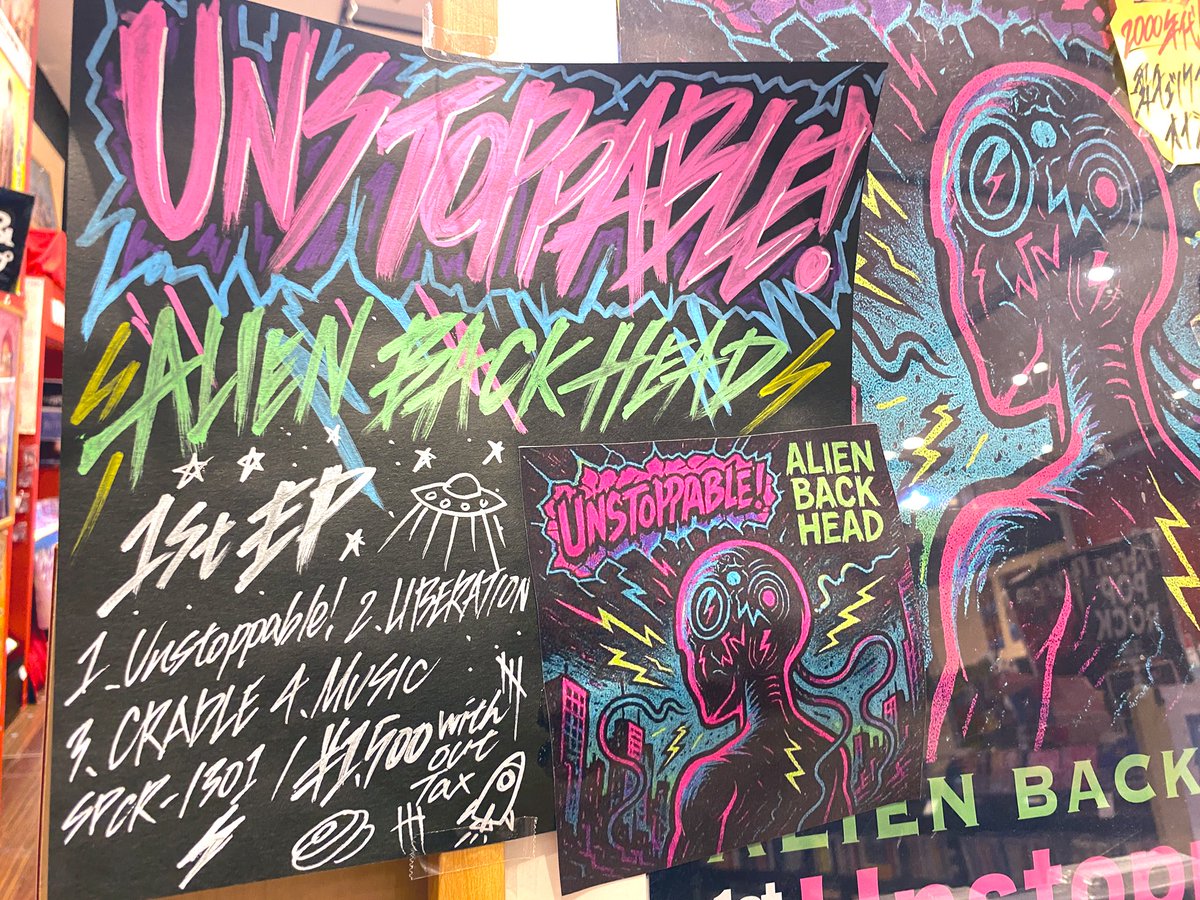 UNSTOPPABLE!
ALIEN BACK HEAD
1St EP
1_Unstoppable! 2.LIBERATION
3.CRADLE 4.MUSIC
SPCR-1301 / ¥1,500 with
out
Tax
UNSTOPPABLE!
ALIEN
BACK
HEAD
2000年代
ALIEN BACK
1st Unstop